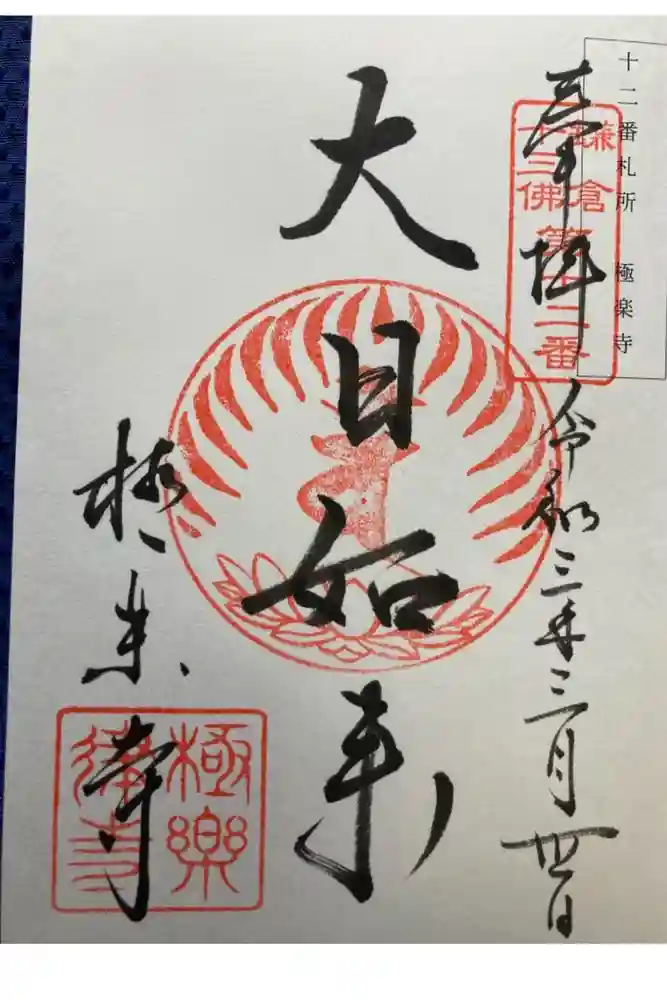 十二番札所 極楽寺
奉拝 令和三年三月
鎌倉
十三佛
第十二番
大日如来
極楽寺
極樂
律寺